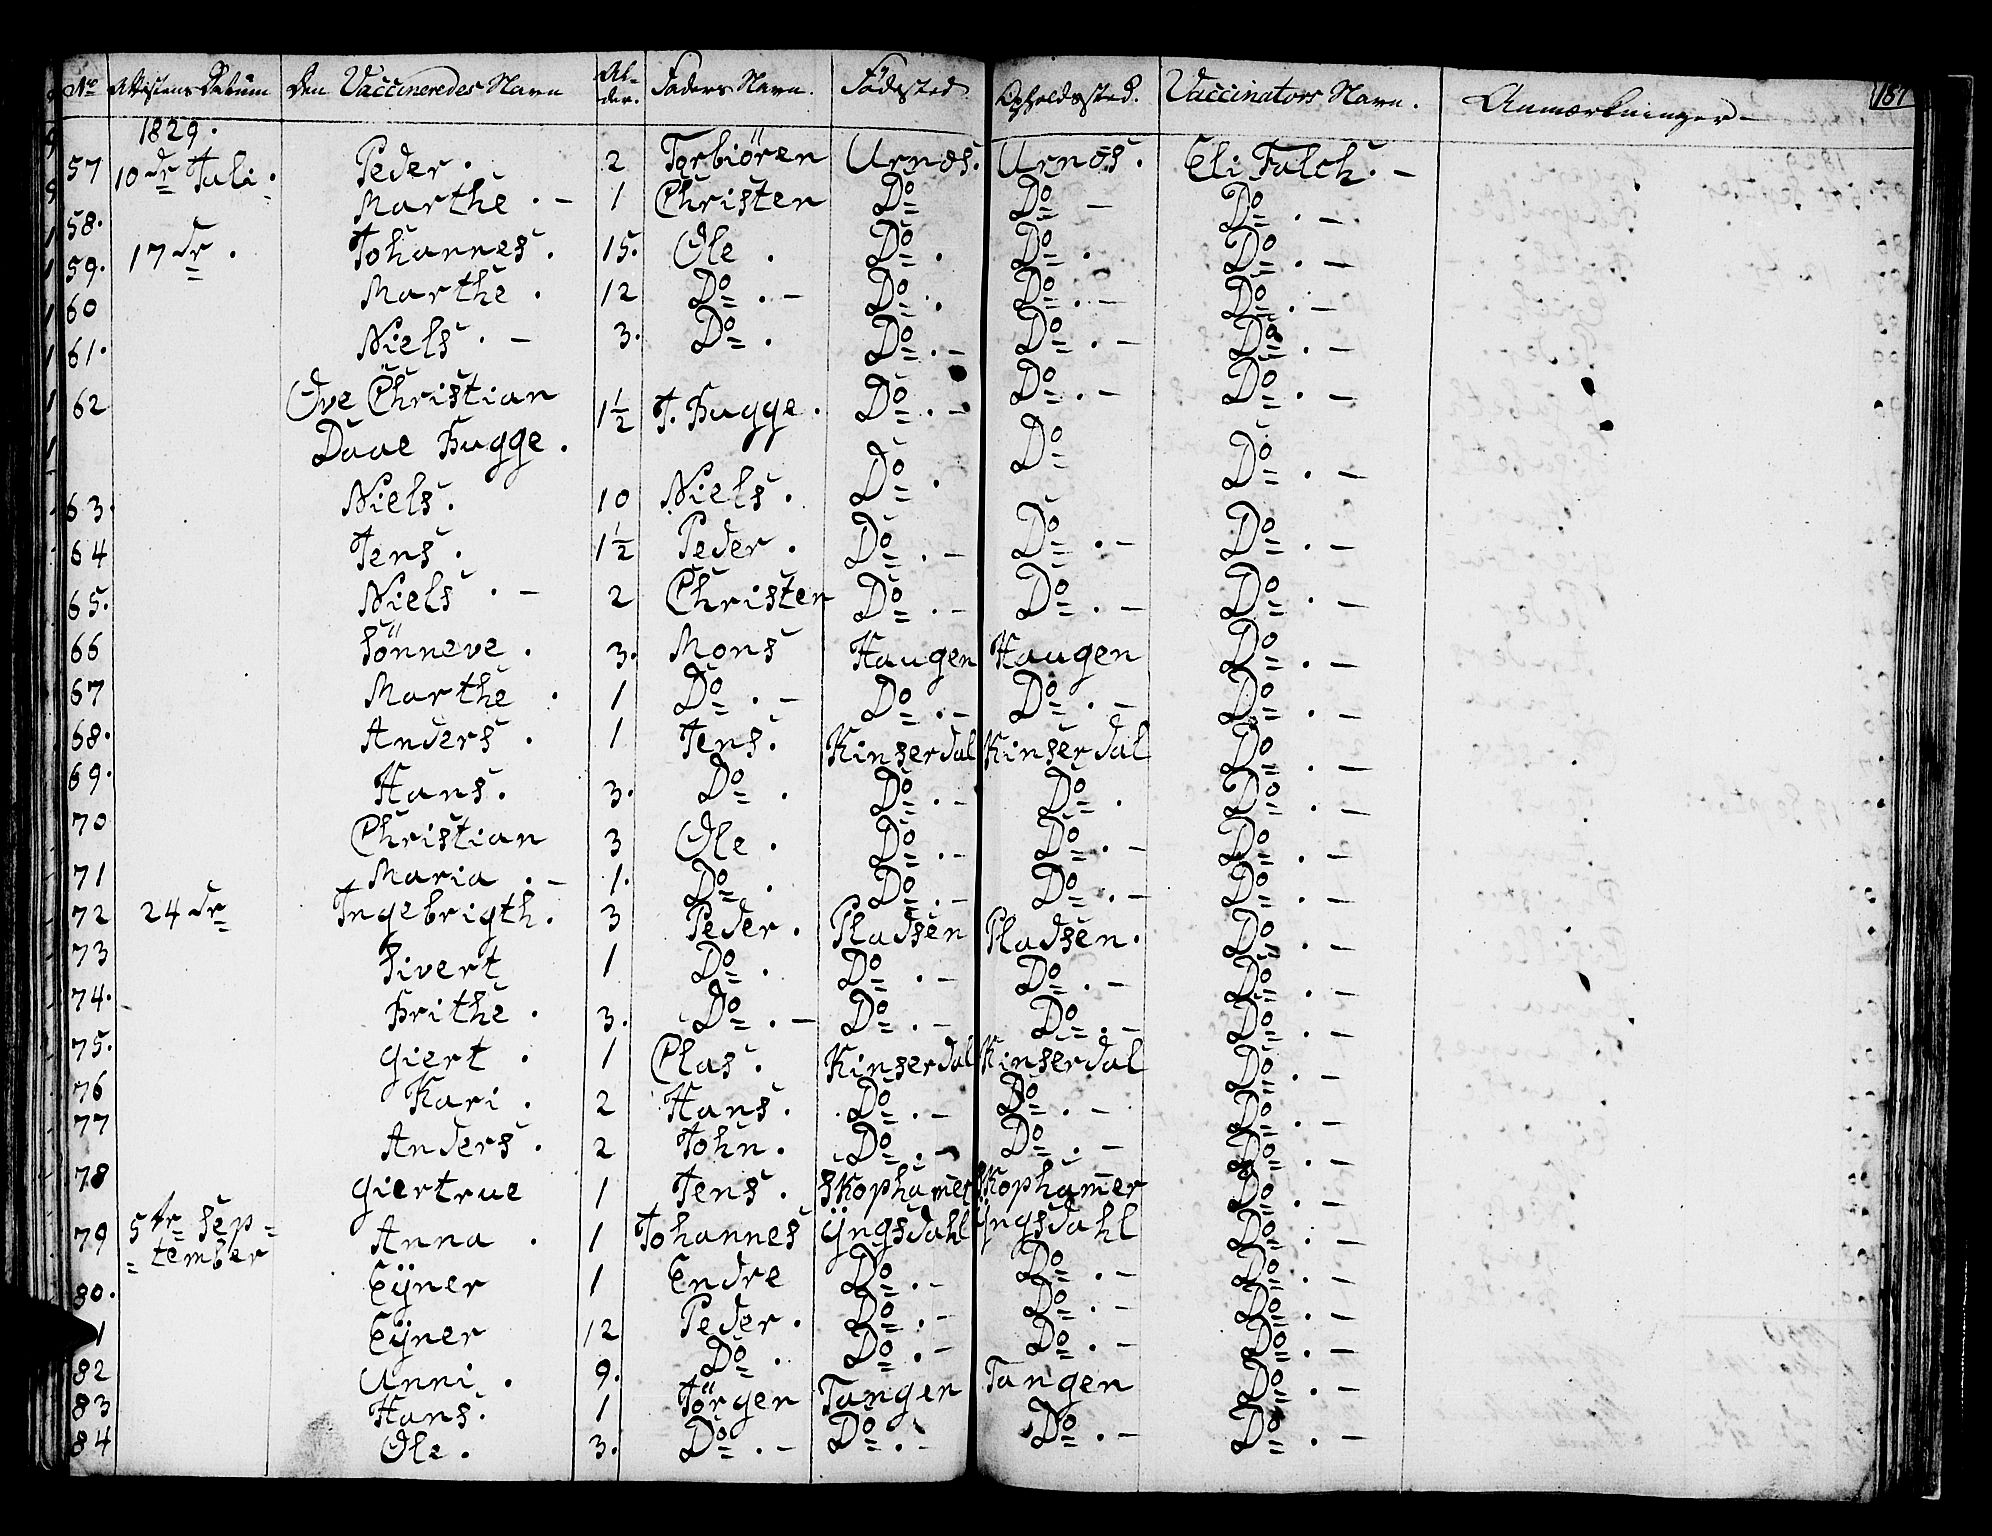 No Attestens Datum Den Vaccineredes Navn Al-der. Faders Navn. Födested Opholdssted. Vaccinators Navn. Anmærkninger. 187
1829.
57 10de Juli. Peder. 2 Torbiören Urnæs. Urnæs. Eli Falch. -
58. Marthe. - 1 Christen Do Do - Do. -
59. 17de. Johannes. 15. Ole. Do. Do. Do. -
60 Marthe. 12 Do. - Do. Do. - Do. -
61. Niels. - 3. Do. Do. - Do. - Do. -
62 Ove Christian 1½ J. Bugge. Do. - Do. - Do. -
Daae Bugge.
63. Niels. 10 Niels. Do. Do Do. -
64 Jens. 1½ Peder. Do. - Do. - Do. -
65. Niels. - 2 Christen Do. - Do. - Do. -
66 Sönneve. 3. Mons Haugen Haugen Do. -
67 Marthe. 1 Do. - Do. - Do. - Do. -
68. Anders. 1 Jens. Kinserdal Kinserdal Do. -
69. Hans. 3. Do. Do. - Do. Do. -
70 Christian 3 Ole. Do. - Do. - Do. -
71 Maria. - 1. Do. Do. - Do. - Do. -
72 24de Ingebrigth. 3 Peder. Pladsen Pladsen. Do. -
73 Sivert 1 Do. Do. - Do. - Do. -
74. Brithe. 3. Do. - Do. - Do. - Do. -
75. Giert. 1 Clas. Kinserdal Kinserdal Do. -
76 Kari. 2 Hans. Do. - Do. - Do. -
77 Anders. 2 John. Do. - Do. - Do. -
78 Giertrue 1 Jens. Skophamer Skophamer Do. -
79 5te Sep= Anna. 1 Johannes Yngsdahl Yngsdahl Do. -
=tember
80. Eÿner 1 Endre Do. - Do. - Do. -
1 Eÿner 12 Peder. Do. - Do. - Do. -
82 Anni. 9. Do. Do. - Do. - Do. -
83 Hans. 1 Jörgen Tangen Tangen Do. -
84 Ole. 3. Do. - Do. - Do. - Do. -